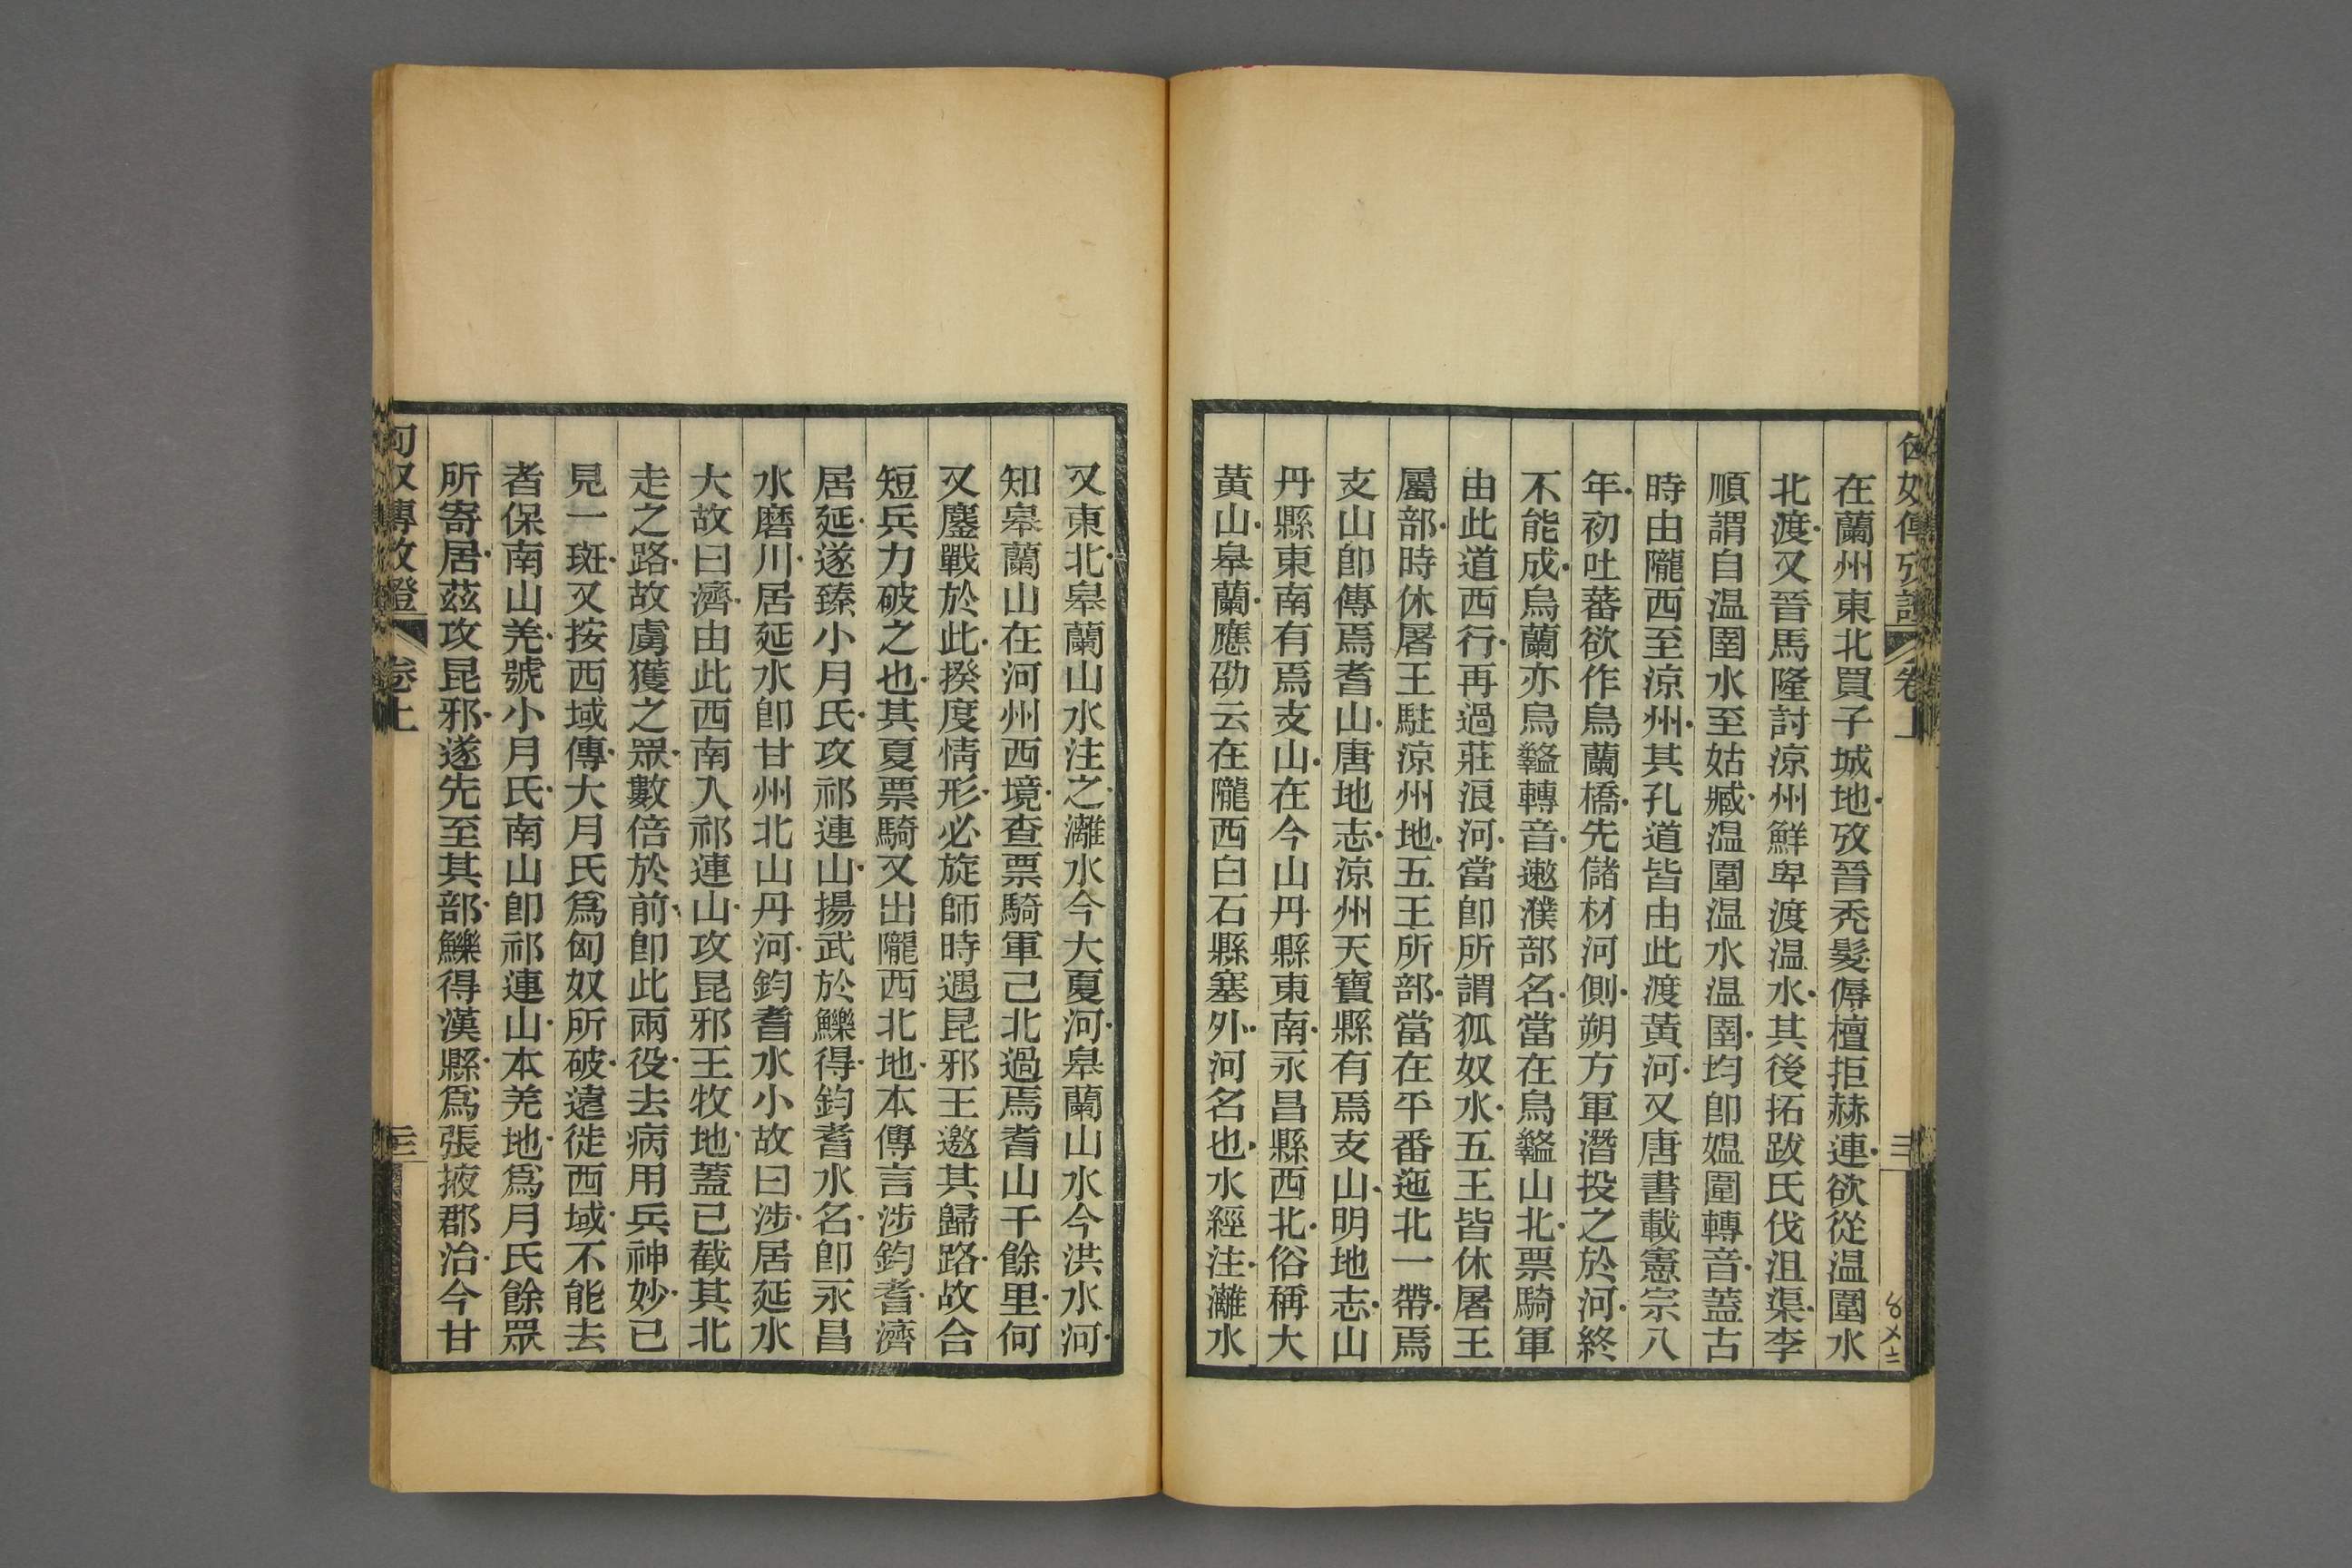 匈奴傳攷證 卷上
在蘭州東北買子城地攷晉禿髮傉檀拒赫連欲從温圍水
北渡又晉馬隆討涼州鮮卑渡温水其後拓跋氏伐沮渠李
順謂自温圉水至姑臧温圍温水温圉均卽媼圍轉音蓋古
時由隴西至涼州其孔道皆由此渡黃河又唐書載憲宗八
年初吐蕃欲作烏蘭橋先儲材河側朔方軍潛投之於河終
不能成烏蘭亦烏盭轉音遬濮部名當在烏盭山北票騎軍
由此道西行再過莊浪河當卽所謂狐奴水五王皆休屠王
屬部時休屠王駐涼州地五王所部當在平番迤北一帶焉
支山卽傳焉耆山唐地志涼州天寶縣有焉支山明地志山
丹縣東南有焉支山在今山丹縣東南永昌縣西北俗稱大
黃山皋蘭應劭云在隴西白石縣塞外河名也水經注灕水
又東北皋蘭山水注之灕水今大夏河皋蘭山水今洪水河
知皋蘭山在河州西境查票騎軍已北過焉耆山千餘里何
又鏖戰於此揆度情形必旋師時遇昆邪王邀其歸路故合
短兵力破之也其夏票騎又出隴西北地本傳言涉鈞耆濟
居延遂臻小月氏攻祁連山揚武於鱳得鈞耆水名卽永昌
水磨川居延水卽甘州北山丹河鈞耆水小故曰涉居延水
大故曰濟由此西南入祁連山攻昆邪王牧地蓋已截其北
走之路故虜獲之眾數倍於前卽此兩役去病用兵神妙已
見一斑又按西域傳大月氏爲匈奴所破遠徙西域不能去
者保南山羌號小月氏南山卽祁連山本羌地爲月氏餘眾
所寄居茲攻昆邪遂先至其部鱳得漢縣爲張掖郡治今甘
匈奴傳攷證 卷上